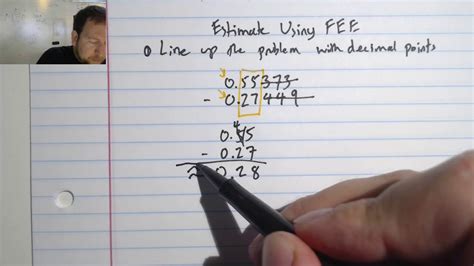 Estimate Using FEE
① Line up the problem with decimal points
0.55373
- 0.27449
4
0.55
- 0.27
≈ 0.28